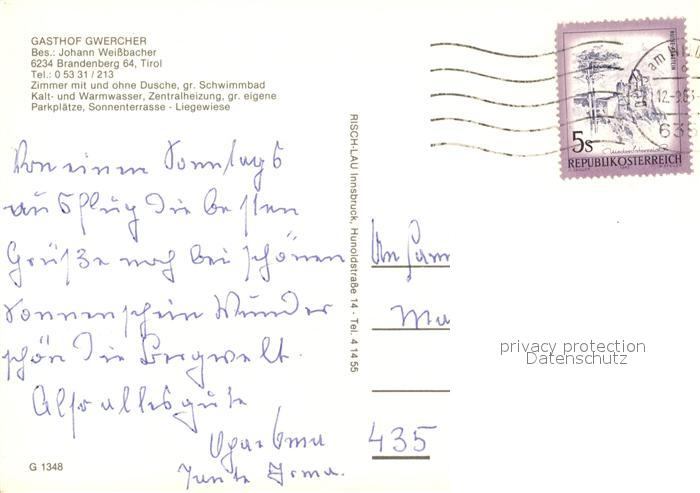 GASTHOF GWERCHER
Bes.: Johann Weißbacher
6234 Brandenberg 64, Tirol
Tel.: 0 53 31 / 213
Zimmer mit und ohne Dusche, gr. Schwimmbad
Kalt- und Warmwasser, Zentralheizung, gr. eigene
Parkplätze, Sonnenterrasse - Liegewiese
Von einem Sonntags
ausflug die besten
Grüße noch bei schönen
Sonnenschein Wunder
schön die Bergwelt.
Also alles gute
Tante Irma.
G 1348
RISCH-LAU Innsbruck, Hunoldstraße 14 - Tel. 4 14 55
5s
REPUBLIK ÖSTERREICH
An Fam
435
privacy protection
Datenschutz